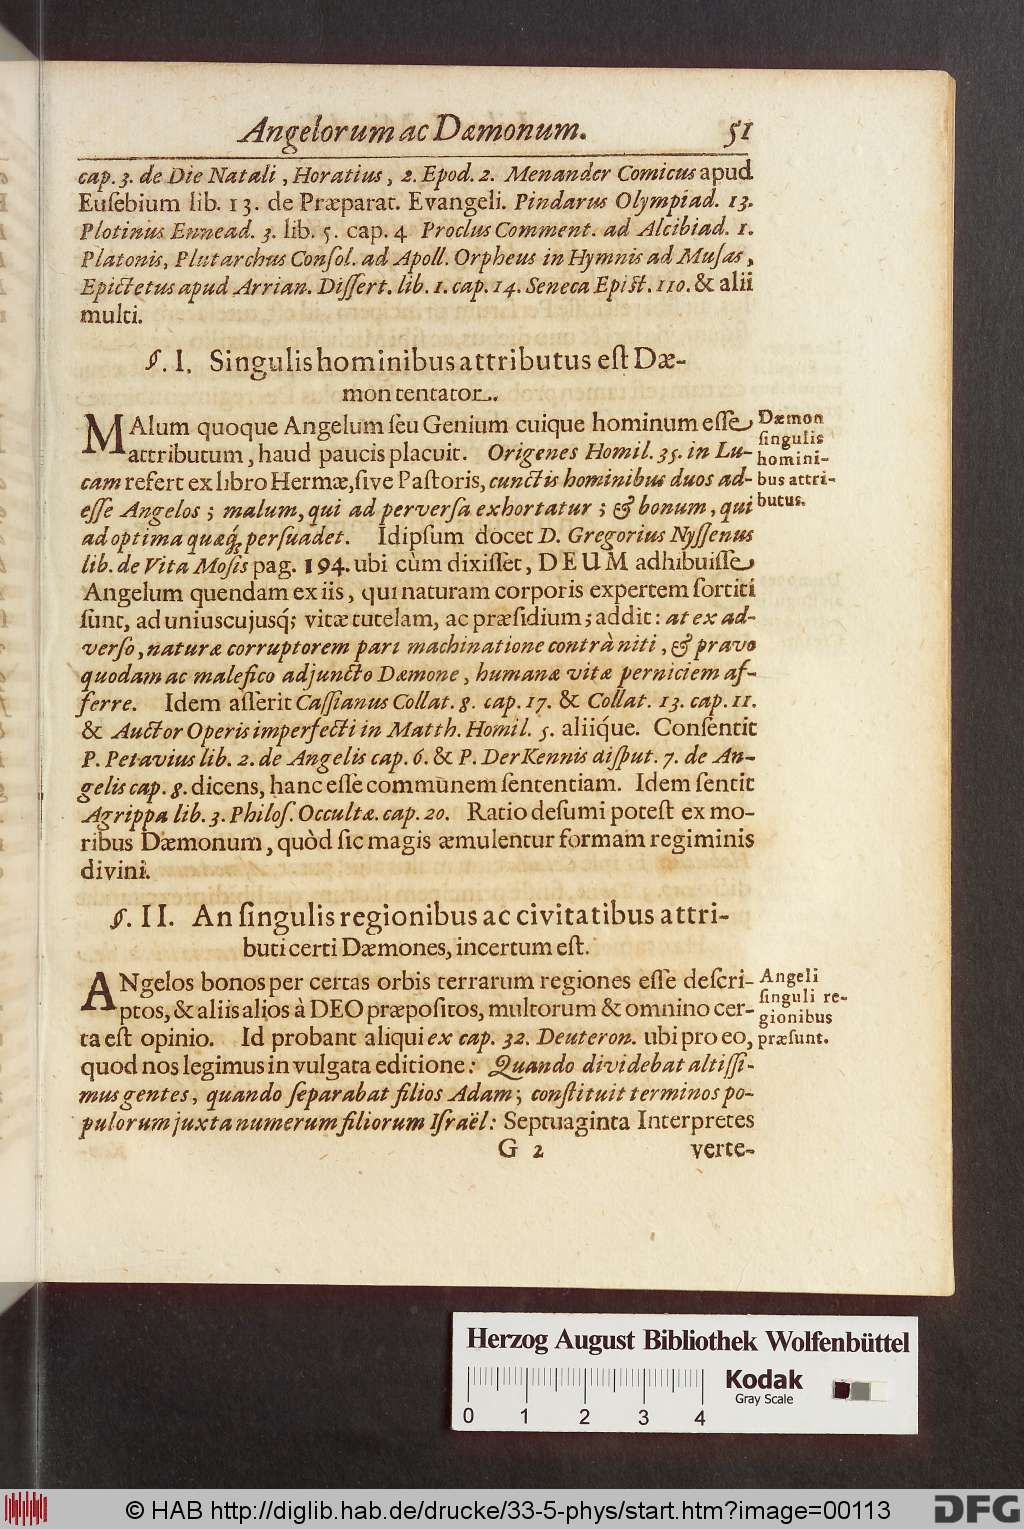 Angelorum ac Dæmonum. 51
cap. 3. de Die Natali, Horatius, 2. Epod. 2. Menander Comicus apud
Euſebium lib. 13. de Præparat. Evangeli. Pindarus Olympiad. 13.
Plotinus Ennead. 3. lib. 5. cap. 4 Proclus Comment. ad Alcibiad. 1.
Platonis, Plutarchus Conſol. ad Apoll. Orpheus in Hymnis ad Muſas,
Epictetus apud Arrian. Diſſert. lib. 1. cap. 14. Seneca Epiſt. 110. & alii
multi.
§. I. Singulis hominibus attributus eſt Dæ-
mon tentator.
MAlum quoque Angelum ſeu Genium cuique hominum eſſe
attributum, haud paucis placuit. Origenes Homil. 35. in Lu-
cam refert ex libro Hermæ, ſive Paſtoris, cunctis hominibus duos ad-
eſſe Angelos; malum, qui ad perverſa exhortatur; & bonum, qui
ad optima quæq; perſuadet. Idipſum docet D. Gregorius Nyſſenus
lib. de Vita Moſis pag. 194. ubi cùm dixiſſet, DEUM adhibuiſſe
Angelum quendam ex iis, qui naturam corporis expertem ſortiti
ſunt, ad uniuscujusq; vitæ tutelam, ac præſidium; addit: at ex ad-
verſo, naturæ corruptorem pari machinatione contrà niti, & pravo
quodam ac malefico adjuncto Dæmone, humanæ vitæ perniciem af-
ferre. Idem aſſerit Caſſianus Collat. 8. cap. 17. & Collat. 13. cap. 11.
& Auctor Operis imperfecti in Matth. Homil. 5. aliiq́ue. Conſentit
P. Petavius lib. 2. de Angelis cap. 6. & P. DerKennis diſput. 7. de An-
gelis cap. 8. dicens, hanc eſſe communem ſententiam. Idem ſentit
Agrippa lib. 3. Philoſ. Occultæ. cap. 20. Ratio deſumi poteſt ex mo-
ribus Dæmonum, quòd ſic magis æmulentur formam regiminis
divini.
Dæmon
ſingulis
homini-
bus attri-
butus.
§. II. An ſingulis regionibus ac civitatibus attri-
buti certi Dæmones, incertum eſt.
ANgelos bonos per certas orbis terrarum regiones eſſe deſcri-
ptos, & aliis alios à DEO præpoſitos, multorum & omnino cer-
ta eſt opinio. Id probant aliqui ex cap. 32. Deuteron. ubi pro eo,
quod nos legimus in vulgata editione: Quando dividebat altiſſi-
mus gentes, quando ſeparabat filios Adam; conſtituit terminos po-
pulorum juxta numerum filiorum Iſraël: Septuaginta Interpretes
Angeli
ſinguli re-
gionibus
præſunt.
G 2 verte-
Herzog August Bibliothek Wolfenbüttel
0 1 2 3 4
Kodak
Gray Scale
© HAB http://diglib.hab.de/drucke/33-5-phys/start.htm?image=00113
DFG